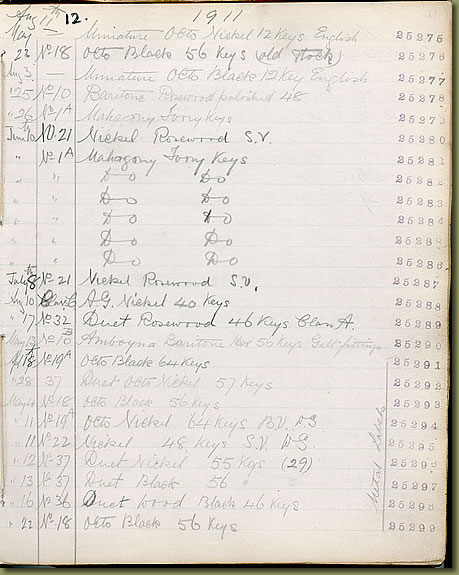 Aug 11th 12. 1911
May — Miniature Octo Nickel 12 Keys English 25275
" 23 No 18 Octo Black 56 Keys (old Stock) 25276
Aug 3. — Miniature Octo Black 12 Key English 25277
" 25 No 10 Baritone Rosewood polished 48 25278
" 26 No 1A Mahogony Ivory Keys 25279
June 10 No 21 Nickel Rosewood S.V. 25280
" No 1A Mahogony Ivory Keys 25281
" " Do Do 25282
" " Do Do 25283
" " Do Do 25284
" " Do Do 25285
" " Do Do 25286
July 8th No 21 Nickel Rosewood S.V. 25287
10 A.G. Nickel 40 Keys 25288
" 17 No 32 Duet Rosewood 46 Keys Class A. 25289
May 13 No 10B Amboyna Baritone 56 Keys Gilt fittings 25290
18th No 19A Octo Black 64 Keys 25291
" 28 37 Duet Octo Nickel 57 Keys 25292
May 4 No 18 Octo Black 56 Keys 25293
" 11 No 19A Octo Nickel 64 Keys B.V. D.S. 25294
" 11 No 22 Nickel 48 Keys S.V. D.S. 25295
" 12 No 37 Duet Nickel 55 Keys (29) 25296
" 13 No 37 Duet Black 56 " 25297
" 16 No 36 Duet Wood Black 46 Keys 25298
" 22 No 18 Octo Black 56 Keys 25299
Metal Labels